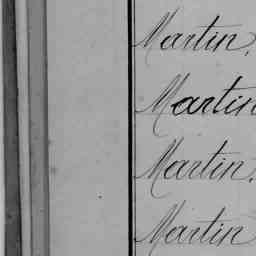 Martin,
Martin
Martin.
Martin